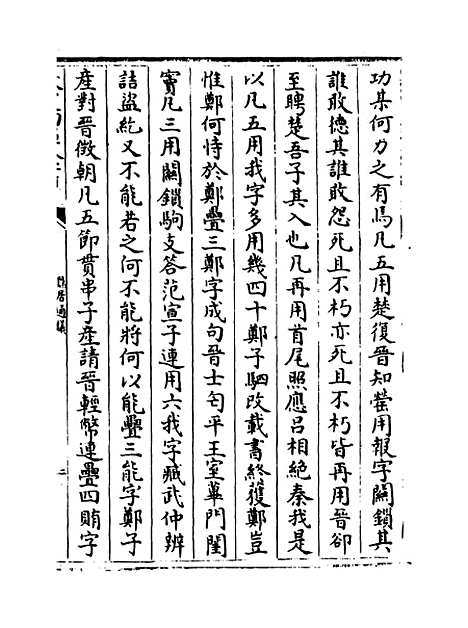 功某何力之有焉凡五用楚復晉知罃用報字關鎖其
誰敢德其誰敢怨死且不朽亦死且不朽皆再用晉卻
至聘楚吾子其入也凡再用首尾照應呂相絕秦我是
以凡五用我字多用幾四十鄭子駟改載書終獲鄭豈
惟鄭何恃於鄭疊三鄭字成句晉士匄平王室蓽門閨
竇凡三用關鎖駒支答范宣子連用六我字臧武仲辨
詰盜紇又不能若之何不能將何以能疊三能字鄭子
產對晉徵朝凡五節貫串子產請晉輕幣連疊四賄字
隱居通議
二